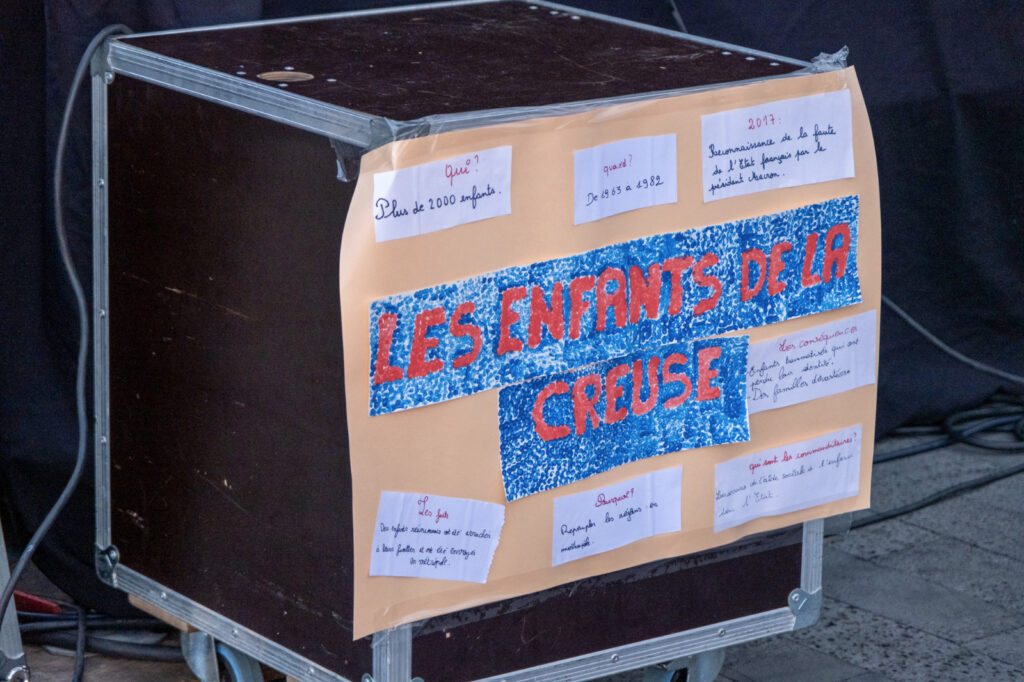 Qui?
Plus de 2000 enfants.
quand?
De 1963 a 1982
2017:
Reconnaissance de la faute
de l'Etat français par le
président Macron.
LES ENFANTS DE LA
CREUSE
Les conséquences
Enfants traumatisés qui ont
perdu leur identité.
Des familles dévastées
Les faits
Des enfants réunionnais ont été arrachés
à leurs familles et ont été envoyés
en métropole.
Pourquoi?
Repeupler les régions en
métropole.
qui sont les commanditaires?
de l'aide sociale à l'enfance
de l'Etat.